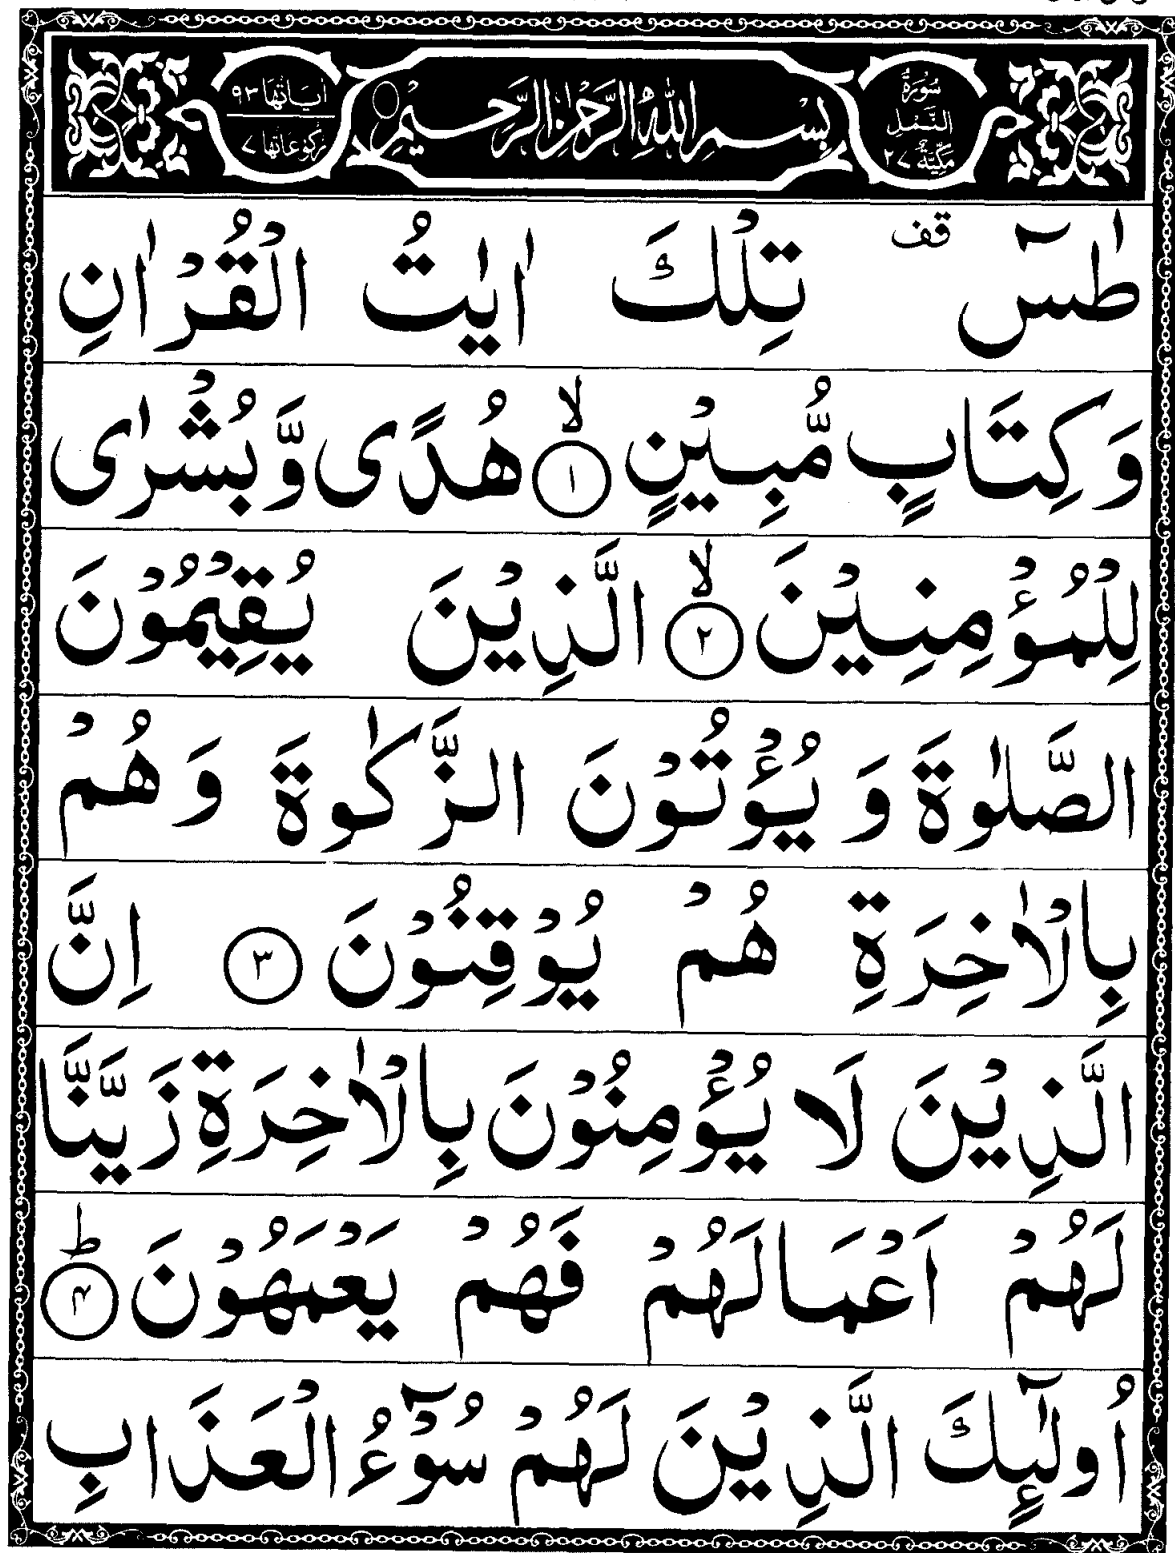 سُوْرَةُ النَّمْلِ مَكِّيَّةٌ ٢٧
بِسْمِ اللهِ الرَّحْمٰنِ الرَّحِيْمِ
اٰيَاتُهَا ٩٣
رُكُوْعَاتُهَا ٧
طٰسٓ قف تِلْكَ اٰيٰتُ الْقُرْاٰنِ
وَكِتَابٍ مُّبِيْنٍ ۙ﴿١﴾ هُدًى وَّبُشْرٰى
لِلْمُؤْمِنِيْنَ ۙ﴿٢﴾ الَّذِيْنَ يُقِيْمُوْنَ
الصَّلٰوةَ وَيُؤْتُوْنَ الزَّكٰوةَ وَهُمْ
بِالْاٰخِرَةِ هُمْ يُوْقِنُوْنَ ﴿٣﴾ اِنَّ
الَّذِيْنَ لَا يُؤْمِنُوْنَ بِالْاٰخِرَةِ زَيَّنَّا
لَهُمْ اَعْمَالَهُمْ فَهُمْ يَعْمَهُوْنَ ؕ﴿٤﴾
اُولٰٓئِكَ الَّذِيْنَ لَهُمْ سُوْٓءُ الْعَذَابِ